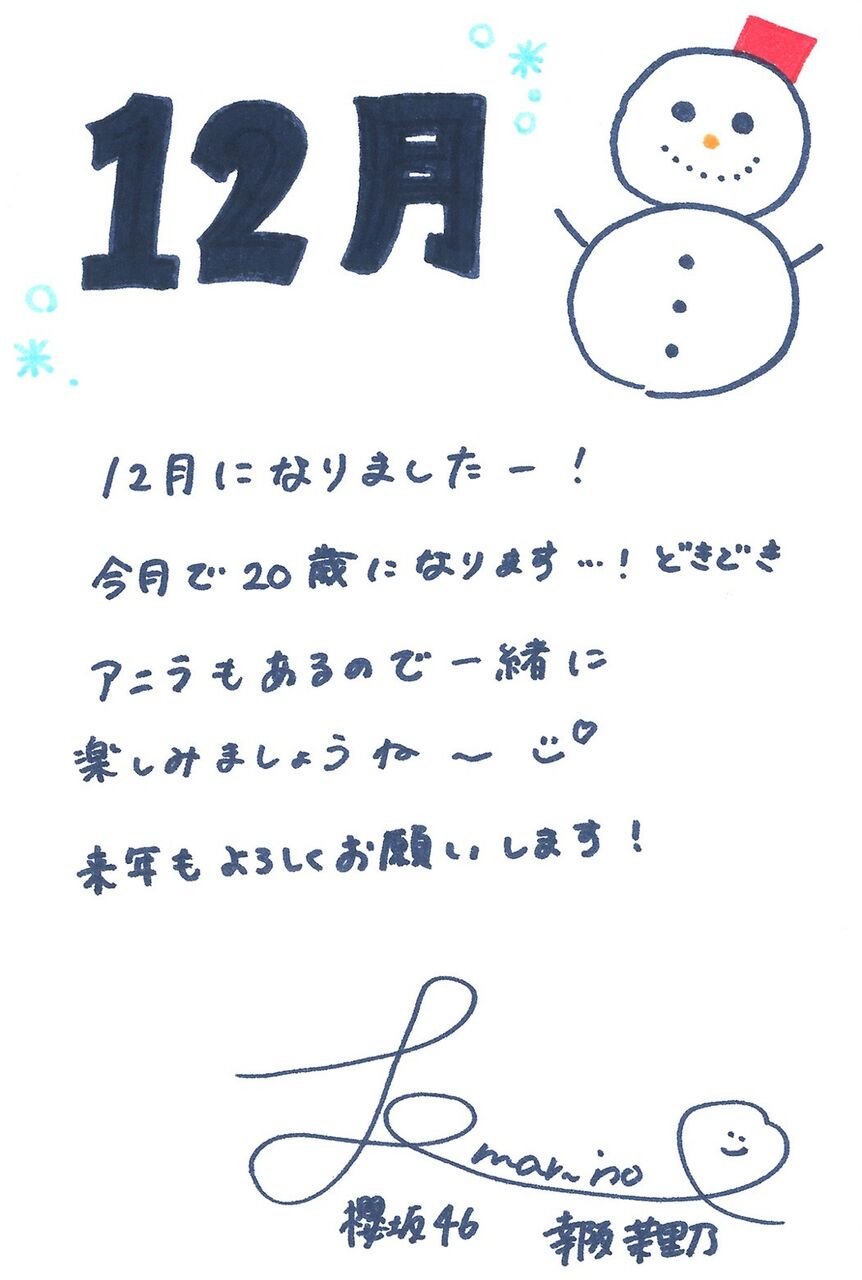 12月
12月になりましたー！
今月で20歳になります…！どきどき
アニラもあるので一緒に
楽しみましょうね〜
来年もよろしくお願いします！
marino
櫻坂46 幸阪茉里乃